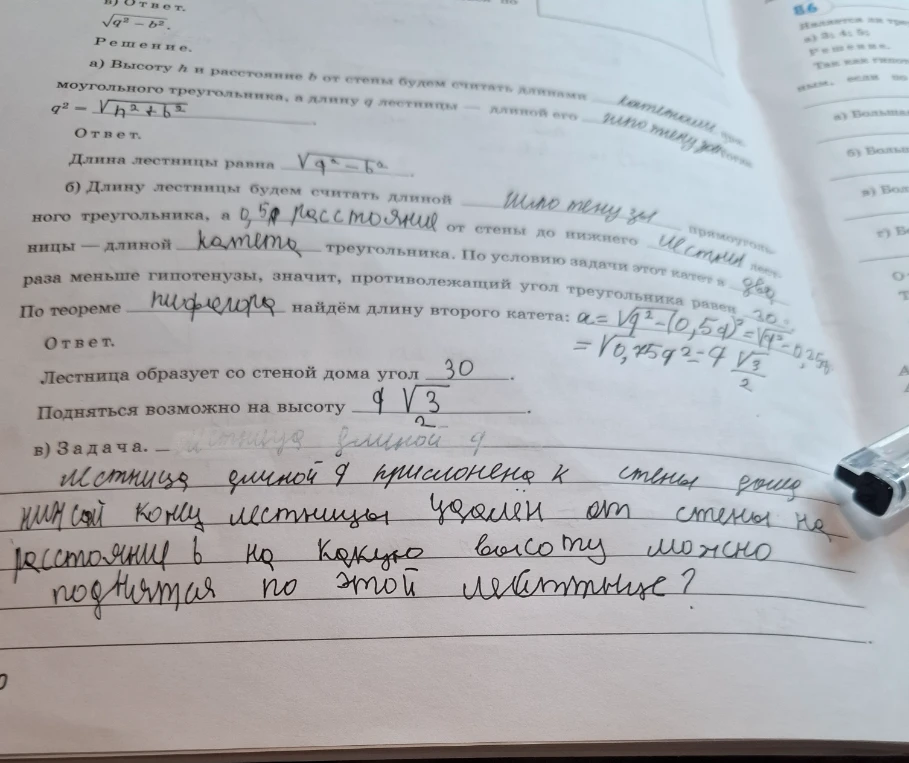 в) Ответ.
√q² − b².
Решение.
а) Высоту h и расстояние b от стены будем считать длинами катетами
моугольного треугольника, а длину q лестницы — длиной его гипотенузы
q² = √h² + b².
Ответ.
Длина лестницы равна √q² − b².
б) Длину лестницы будем считать длиной гипотенузы прямоуголь-
ного треугольника, а 0,5q расстояние от стены до нижнего лест-
ницы — длиной катета треугольника. По условию задачи этот катет в два
раза меньше гипотенузы, значит, противолежащий угол треугольника равен
По теореме пифагора найдём длину второго катета: a = √q² − (0,5q)² = √q² − 0,25q
= √0,75q² = q √3/2
Ответ.
Лестница образует со стеной дома угол 30.
Подняться возможно на высоту q √3/2.
в) Задача. лестница длиной q
лестница длиной q прислонена к стены дома
конец лестницы удалён от стены на
расстояние b на какую высоту можно
поднятся по этой
86
Является ли тре
а) 3; 4; 5;
Решение.
Так как
ным, если
а) Больш
б) Боль
в) Бол
г) Б
О